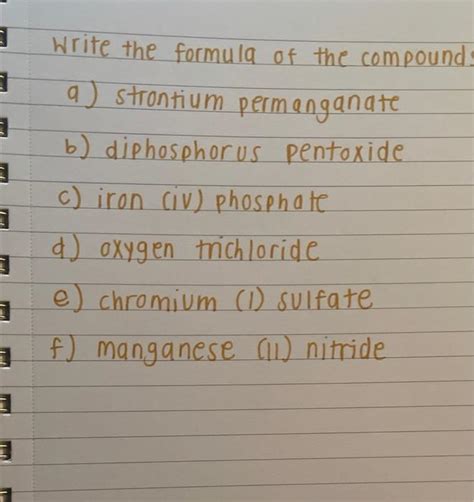 Write the formula of the compounds
a) strontium permanganate
b) diphosphorus pentoxide
c) iron (iv) phosphate
d) oxygen trichloride
e) chromium (I) sulfate
f) manganese (II) nitride